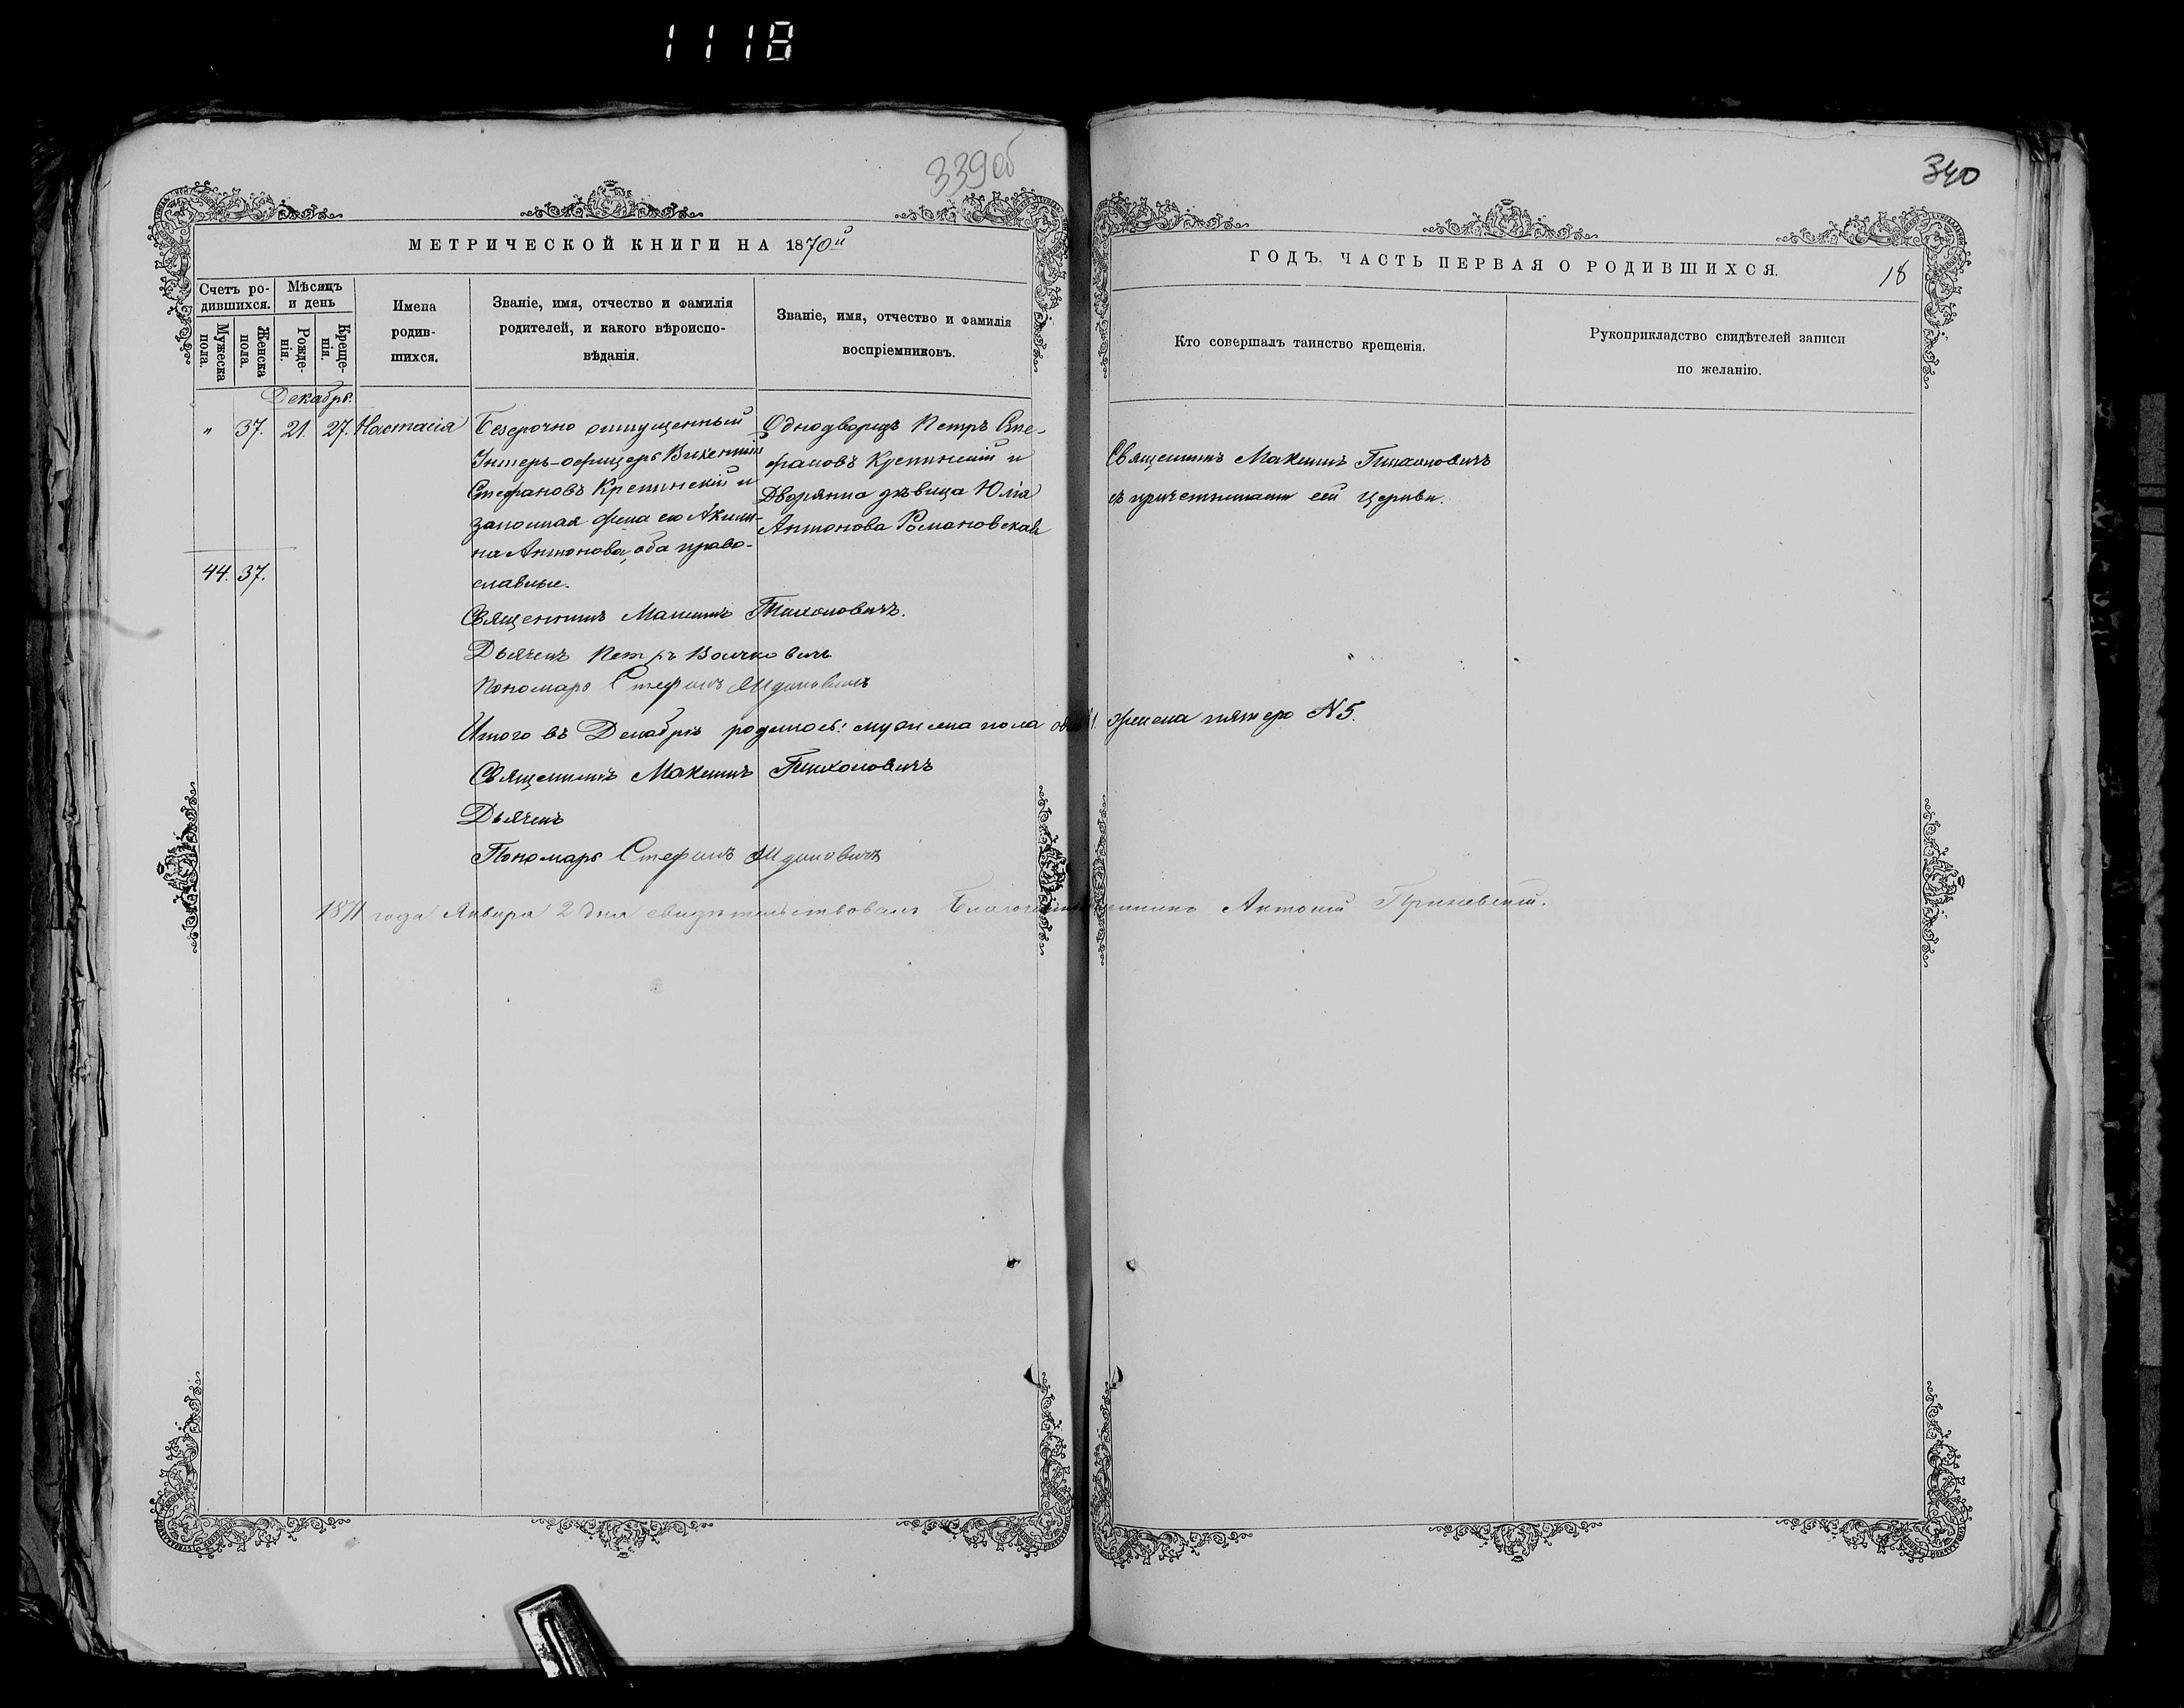 1118
339об
340
МЕТРИЧЕСКОЙ КНИГИ НА 1870й
ГОДЪ. ЧАСТЬ ПЕРВАЯ О РОДИВШИХСЯ.
18
Счетъ ро-
дившихся.
Мужеска
пола.
Женска
пола.
Мѣсяцъ
и день
Рожде-
нія.
Креще-
нія.
Имена
родив-
шихся.
Званіе, имя, отчество и фамилія
родителей, и какого вѣроиспо-
вѣданія.
Званіе, имя, отчество и фамилія
воспріемниковъ.
Кто совершалъ таинство крещенія.
Рукоприкладство свидѣтелей записи
по желанію.
Декабрь.
" 37. 21. 27. Настасія
Безсрочно отпущенный
Унтеръ-офицеръ Викентій
Стефановъ Крепинскій и
законная жена его Акили-
на Антонова, оба право-
славные.
Однодворецъ Петръ Сте-
фановъ Крепинскій и
Дворянка дѣвица Юлія
Антонова Романовская
Священникъ Максимъ Тихоновичъ
съ причетниками сей церкви.
44. 37.
Священникъ Максимъ Тихоновичъ.
Дьячекъ Петръ
Пономарь Стефанъ
Итого въ Декабрѣ родилось: мужеска пола одинъ 1. женска пятеро N 5.
Священникъ Максимъ Тихоновичъ
Дьячекъ
Пономарь Стефанъ
1871 года Января 2 дня свидѣтельствовалъ Антоній